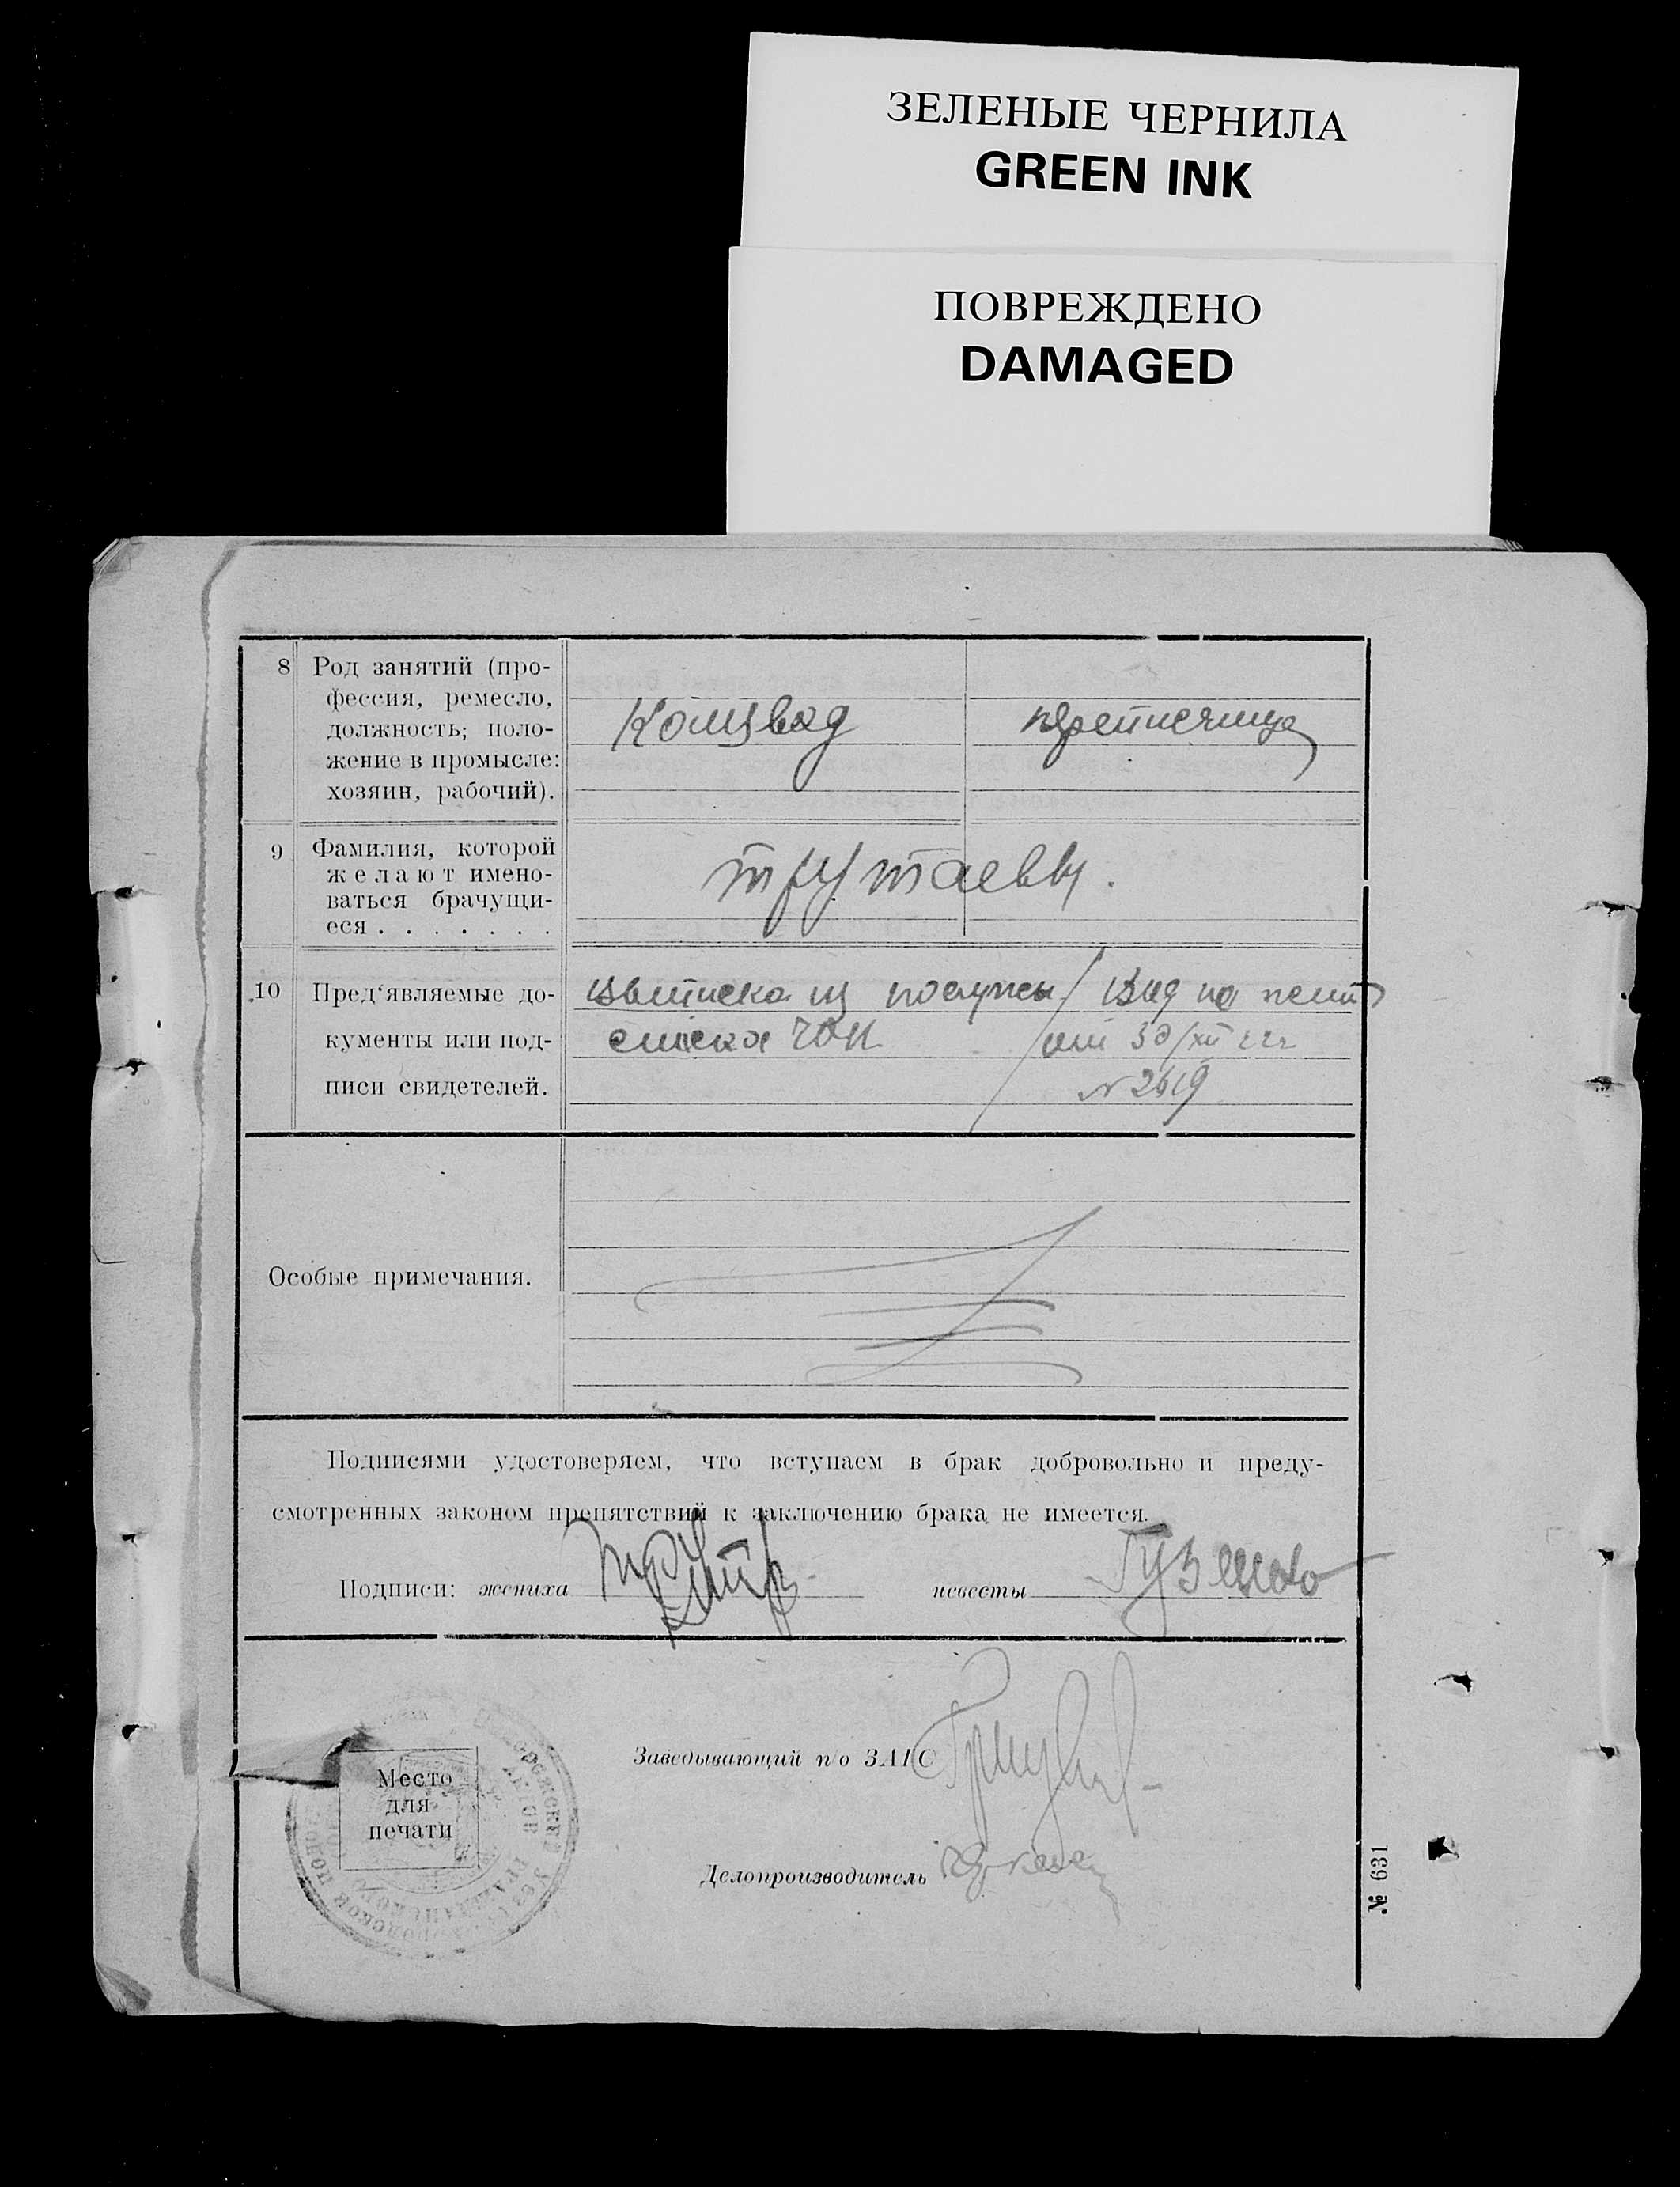 ЗЕЛЕНЫЕ ЧЕРНИЛА
GREEN INK
ПОВРЕЖДЕНО
DAMAGED
8 Род занятий (про-
фессия, ремесло,
должность; поло-
жение в промысле:
хозяин, рабочий).
Комзвод
переписчица
9 Фамилия, которой
желают имено-
ваться брачущи-
еся . . . . . . .
Трутаевы.
10 Пред‘являемые до-
кументы или под-
писи свидетелей.
Выписка из послужн
списка ЧОН
Вид на жит
от 30/XII 22г
N 2619
Особые примечания.
Подписями удостоверяем, что вступаем в брак добровольно и преду-
смотренных законом препятствий к заключению брака не имеется.
Подписи: жениха
невесты
Заведывающий п/о ЗАГС
Место
для
печати
Делопроизводитель
№ 631